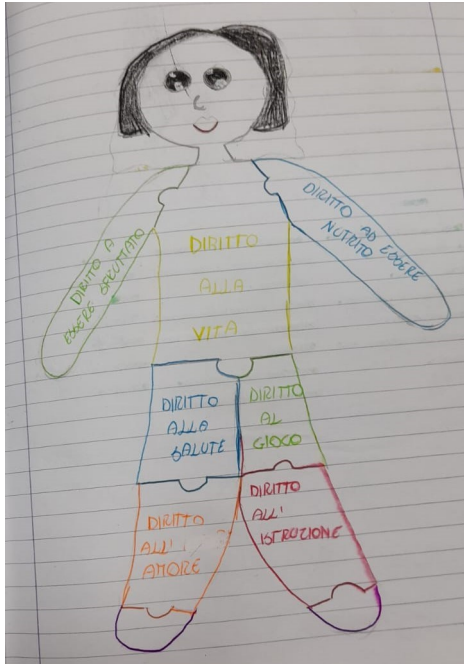 DIRITTO A
ESSERE ASCOLTATO
DIRITTO AD ESSERE
NUTRITO
DIRITTO
ALLA
VITA
DIRITTO
ALLA
SALUTE
DIRITTO
AL
GIOCO
DIRITTO
ALL'
AMORE
DIRITTO
ALL'
ISTRUZIONE